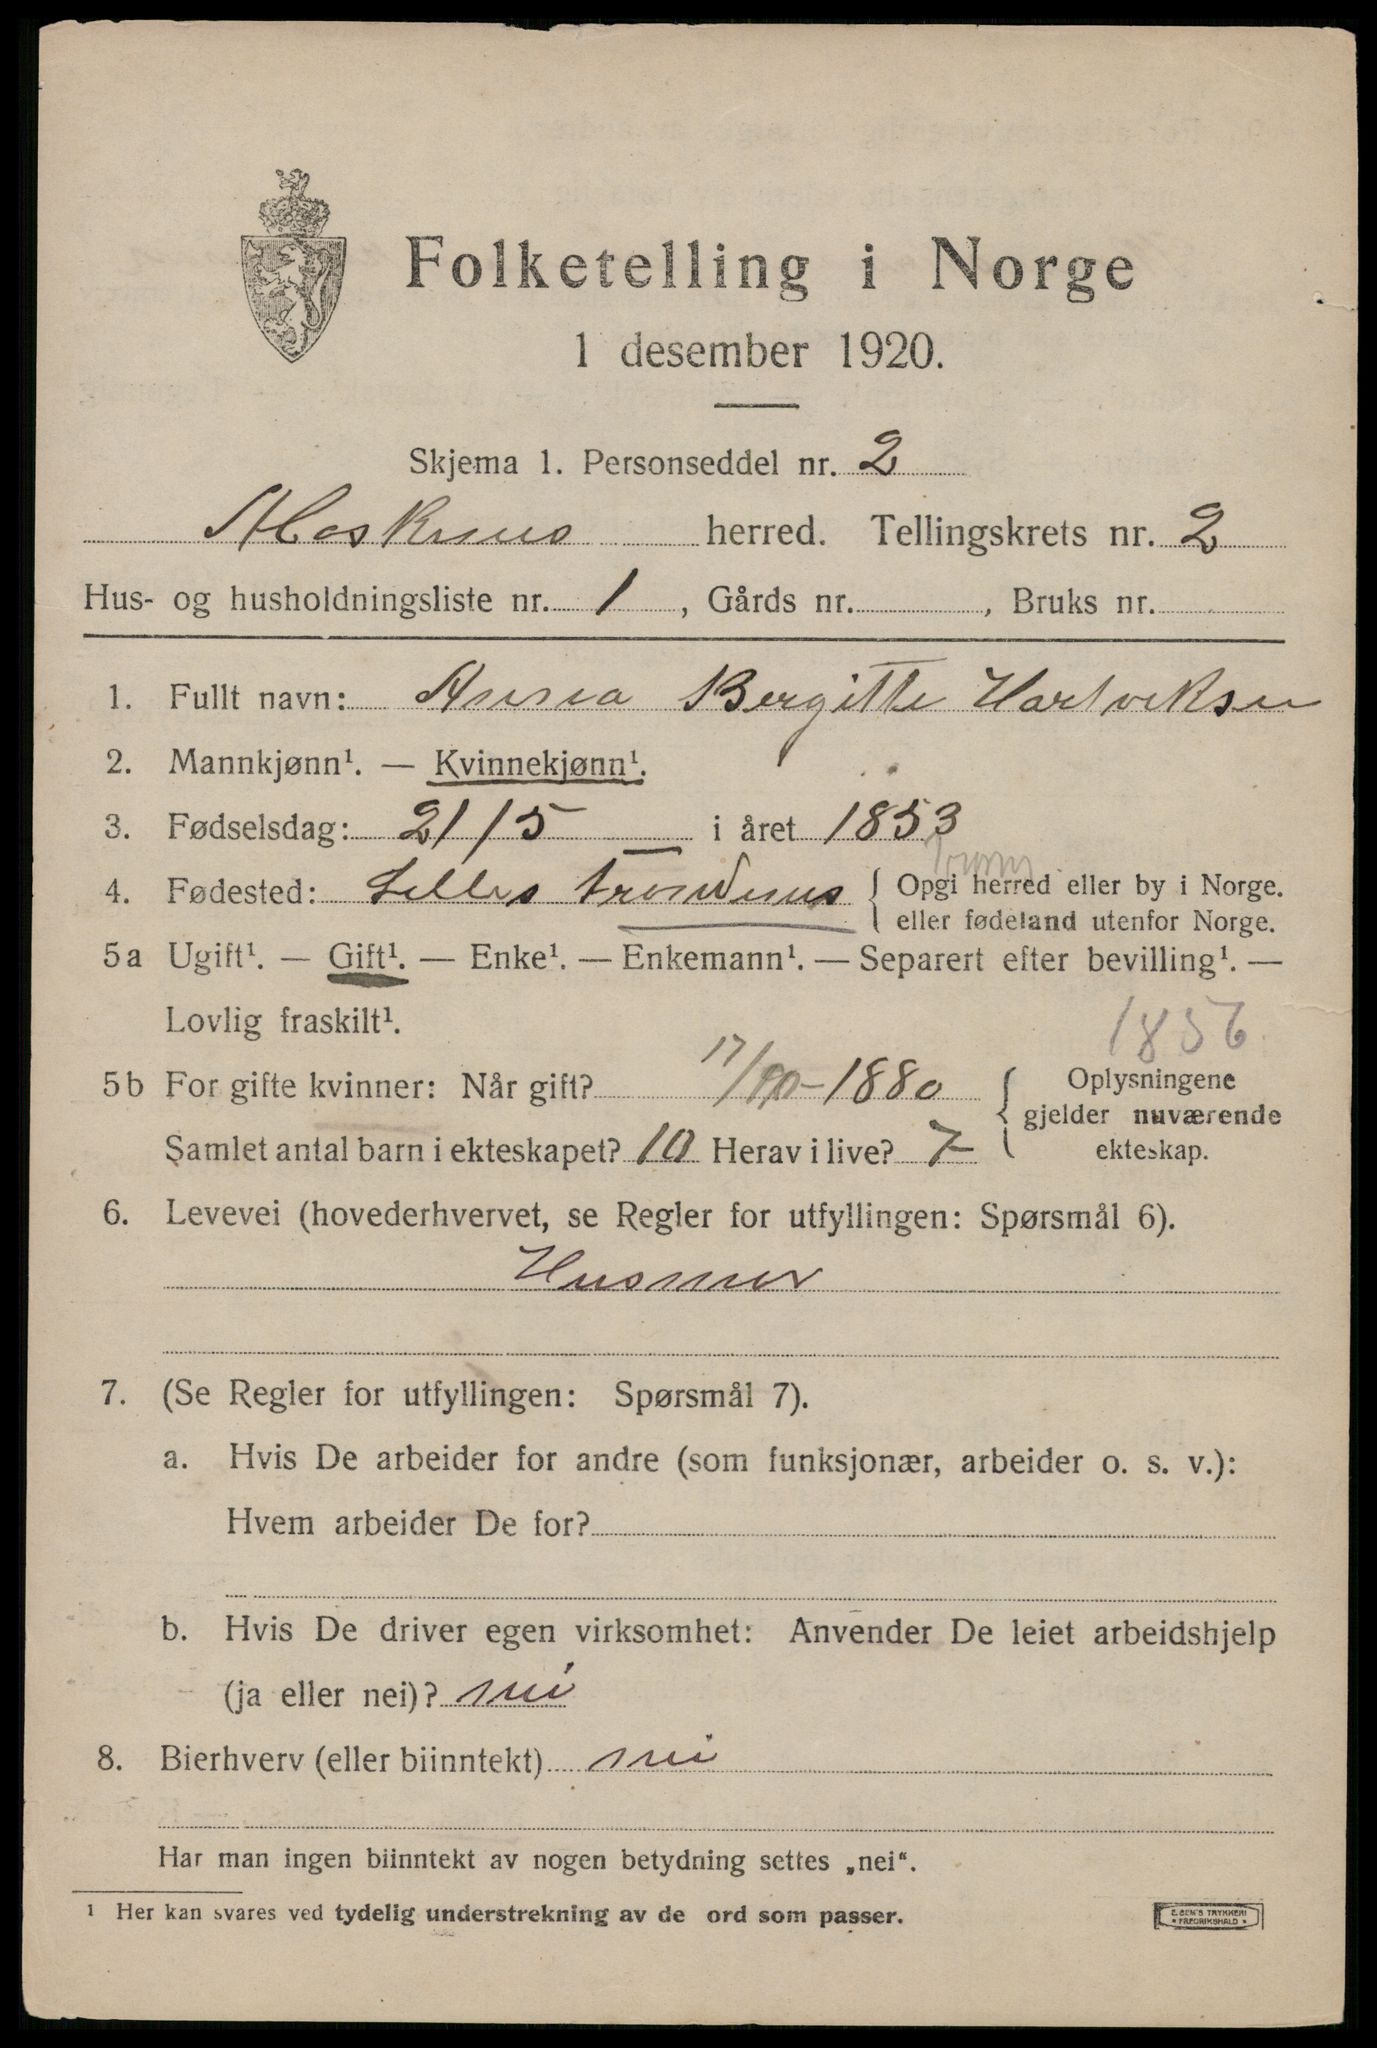 Folketelling i Norge
1 desember 1920.
Skjema 1. Personseddel nr. 2
Moskenes herred. Tellingskrets nr. 2
Hus- og husholdningsliste nr. 1, Gårds nr. , Bruks nr.
1. Fullt navn: Anna Bergitte Hartviksen
2. Mannkjønn¹. — Kvinnekjønn¹.
3. Fødselsdag: 21/5 i året 1853
Troms
4. Fødested: Trondenes { Opgi herred eller by i Norge.
eller fødeland utenfor Norge.
5a Ugift¹. — Gift¹. — Enke¹. — Enkemann¹. — Separert efter bevilling¹. —
Lovlig fraskilt¹.
1856
5b For gifte kvinner: Når gift? 17/10-1880 { Oplysningene
gjelder nuværende
Samlet antal barn i ekteskapet? 10 Herav i live? 7 ekteskap.
6. Levevei (hovederhvervet, se Regler for utfyllingen: Spørsmål 6).
Husmor
7. (Se Regler for utfyllingen: Spørsmål 7).
a. Hvis De arbeider for andre (som funksjonær, arbeider o. s. v.):
Hvem arbeider De for?
b. Hvis De driver egen virksomhet: Anvender De leiet arbeidshjelp
(ja eller nei)? nei
8. Bierhverv (eller biinntekt) nei
Har man ingen biinntekt av nogen betydning settes „nei“.
¹ Her kan svares ved tydelig understrekning av de ord som passer.
E. SEM'S TRYKKERI
* FREDRIKSHALD *